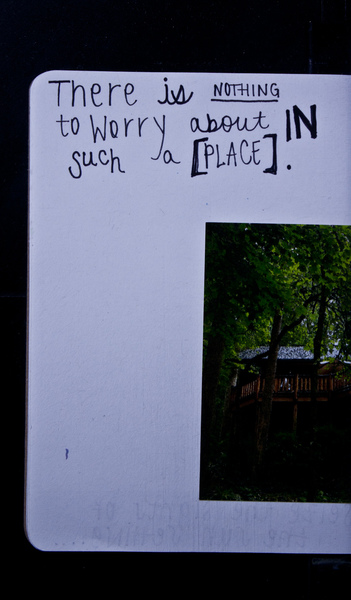 There is NOTHING
to Worry about IN
such a [PLACE].